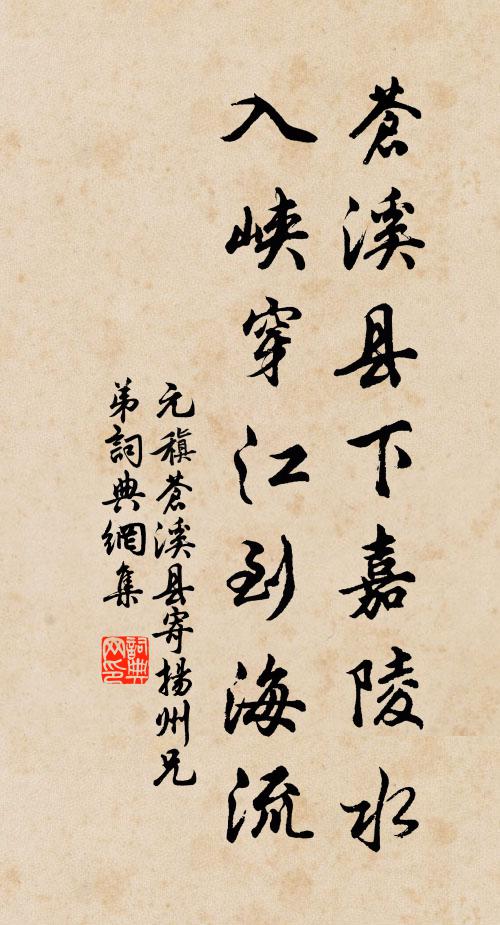 蒼溪县下嘉陵水
入峽穿江到海流
元稹蒼溪县寄揚州兄
弟詞典網集
詞典
网印